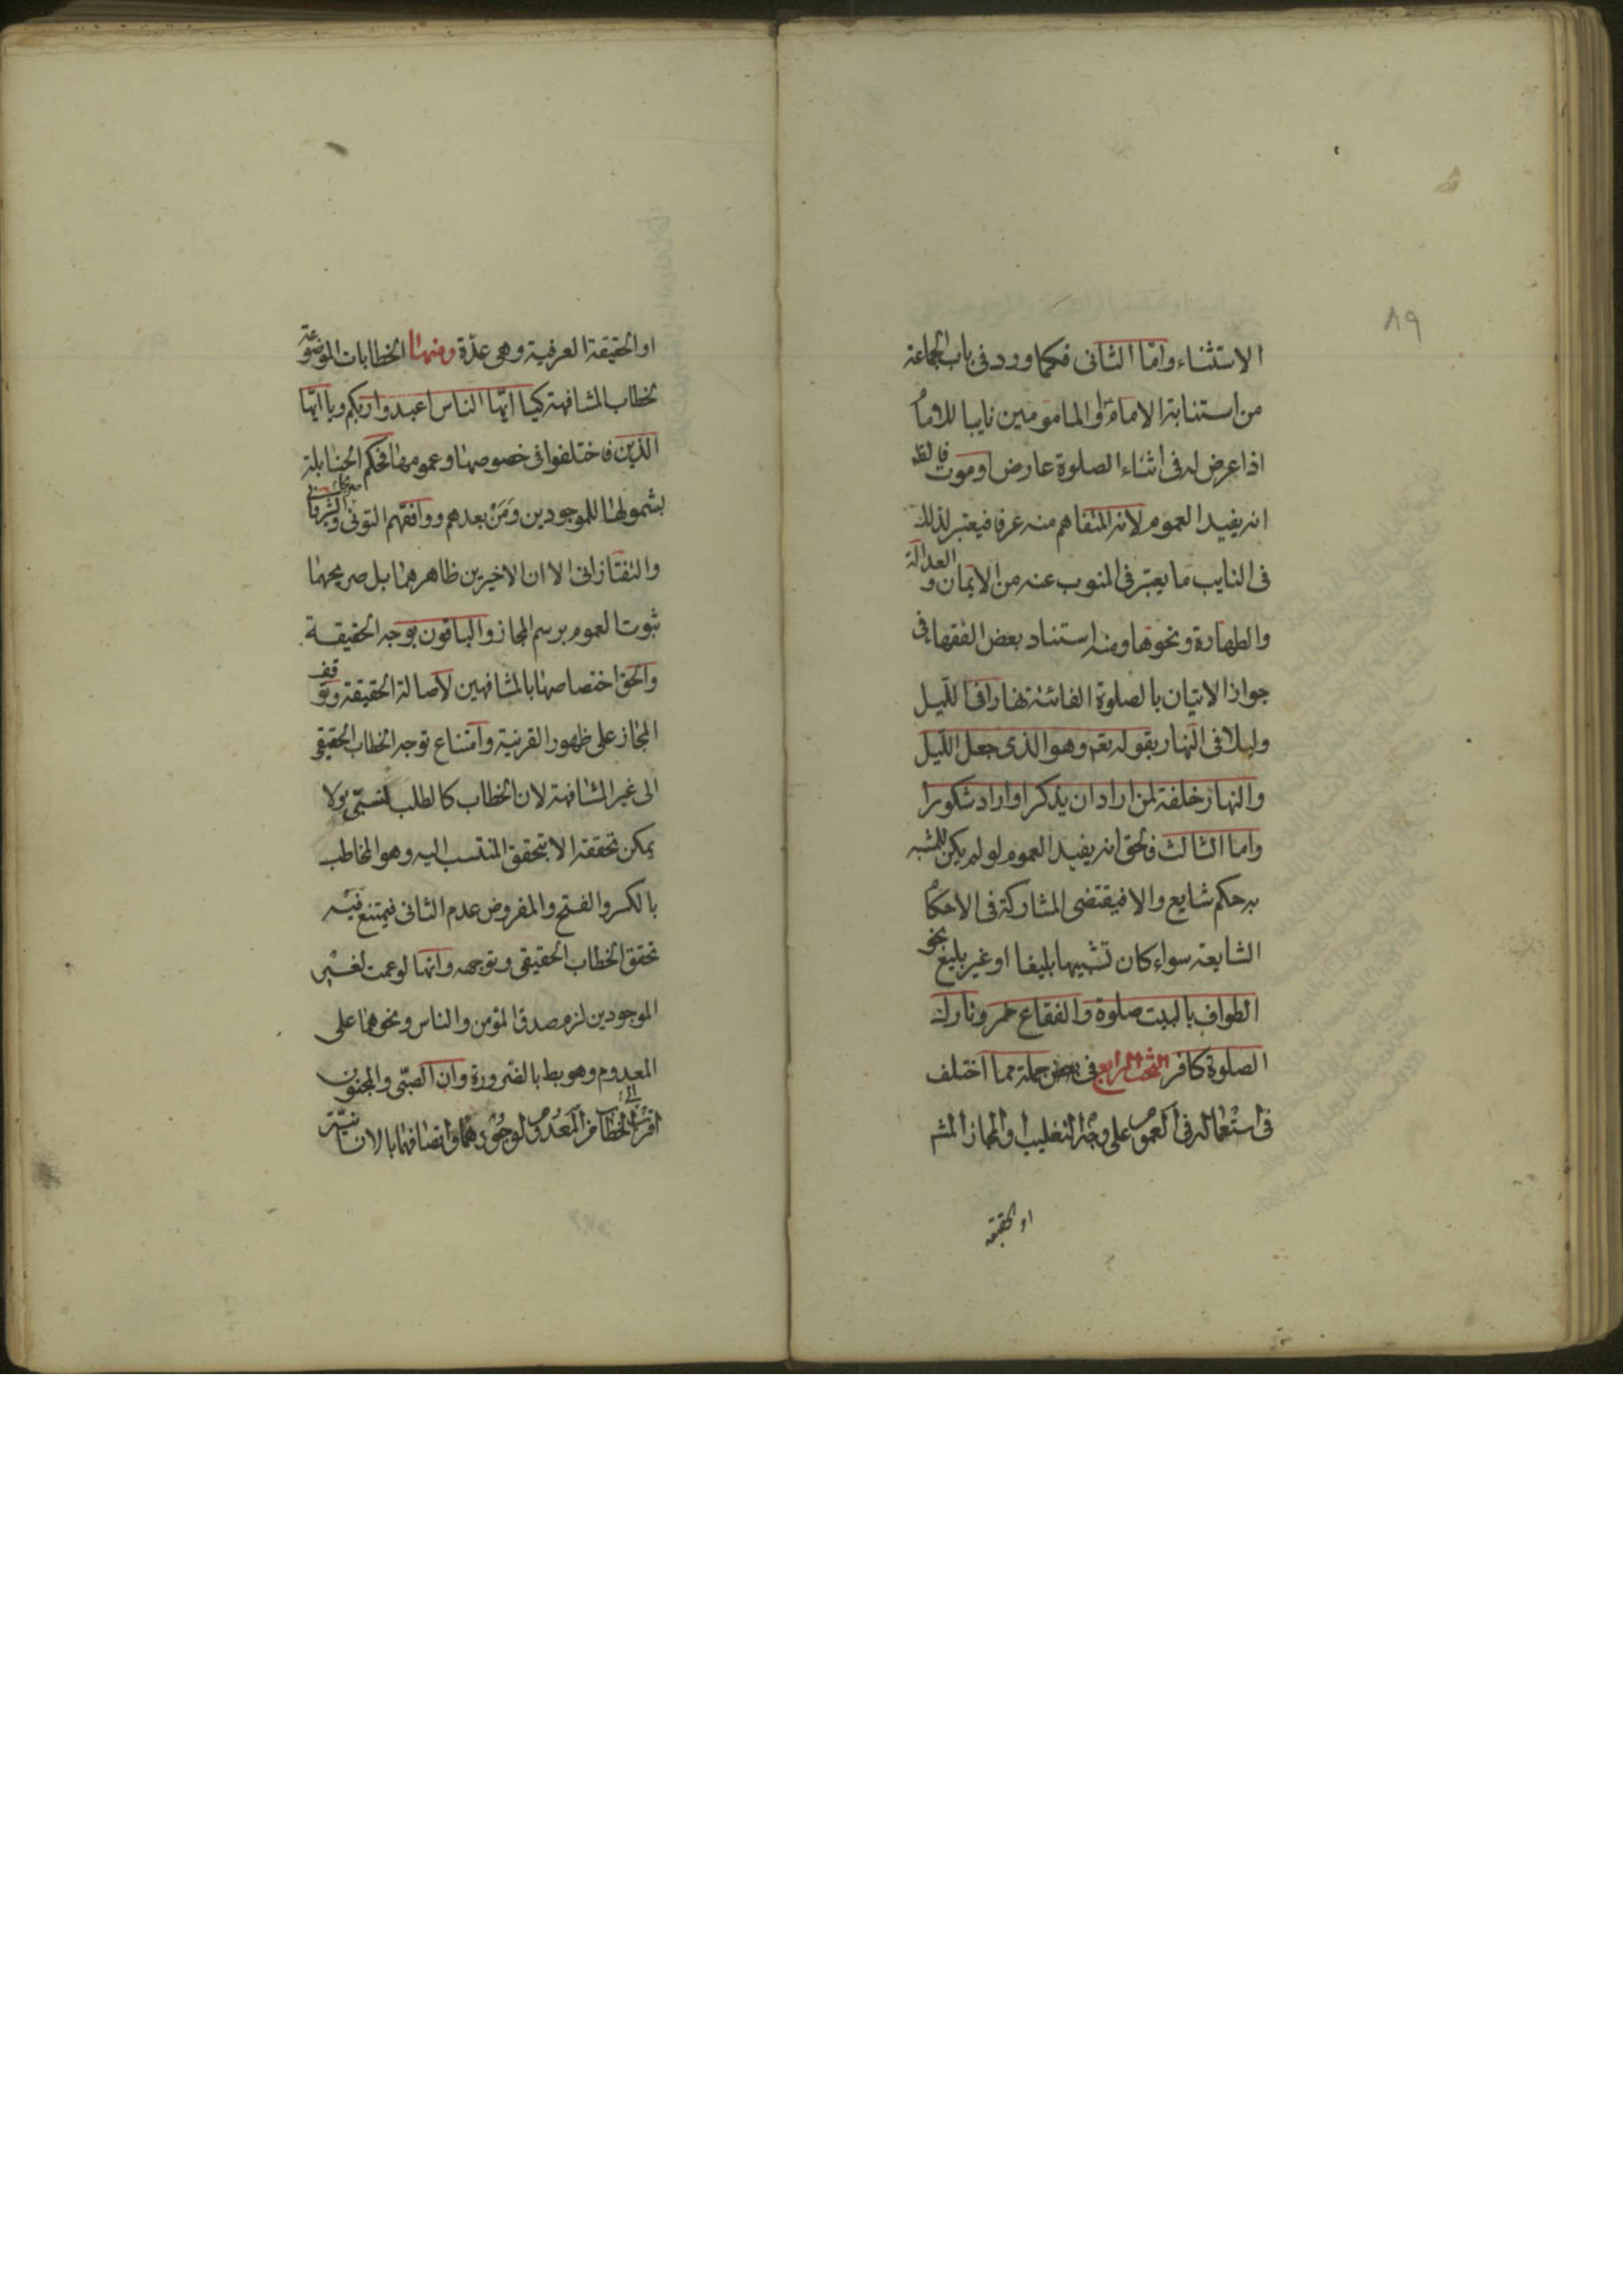 ٨٩
الاستثناء واما الثانى فكما ورد فى باب الجماعة
من استنابة الامام او المامومين نايبا للامام
اذا عرض له فى اثناء الصلوة عارض او موت فالظ
انه يفيد العموم لانه المتفاهم منه عرفا فيعتبر لذلك
فى النايب ما يعتبر فى المنوب عنه من الايمان و العدالة
والطهارة ونحوها ومنه استناد بعض الفقهاء فى
جواز الاتيان بالصلوة الفائتة نهارا فى الليل
وليلا فى النهار بقوله تعم وهو الذى جعل الليل
والنهار خلفة لمن اراد ان يذكر او اراد شكورا
واما الثالث فالحق انه يفيد العموم لو لم يكن للمشبه
به حكم شايع والا فيقتضى المشاركة فى الاحكام
الشايعة سواء كان تشبيها بليغا او غير بليغ نحو
الطواف بالبيت صلوة والفقاع خمر وتارك
الصلوة كافر البحث الرابع فى جملة مما اختلف
فى استعماله فى العموم على وجه التغليب او المجاز المشه
او الحقيقة
او الحقيقة العرفية وهى عدة ومنها الخطابات الموضوعة
لخطاب المشافهة كيا ايها الناس اعبدوا ربكم ويا ايها
الذين فاختلفوا فى خصوصها وعمومها فحكم الحنابلة
بشمولها للموجودين ومن بعدهم ووافقهم التونى والشروانى
والتفتازانى الا ان الاخيرين ظاهرهما بل صريحهما
ثبوت العموم برسم المجاز والباقون بوجه الحقيقة
والحق اختصاصها بالمشافهين لاصالة الحقيقة وتوقف
المجاز على ظهور القرينة وامتناع توجه الخطاب الحقيقى
الى غير المشافهة لان الخطاب كالطلب نسبتى ولا
يمكن تحققه الا بتحقق المنتسب اليه وهو المخاطب
بالكسر والفتح والمفروض عدم الثانى فيمتنع فيه
تحقق الخطاب الحقيقى وتوجهه وانها لو عمت لغير
الموجودين لزم صدق المؤمن والناس ونحوهما على
المعدوم وهو بط بالضرورة وان الصبى والمجنون
اقرب الى الخطاب من المعدوم لوجودهما واتصافهما بالانسانية